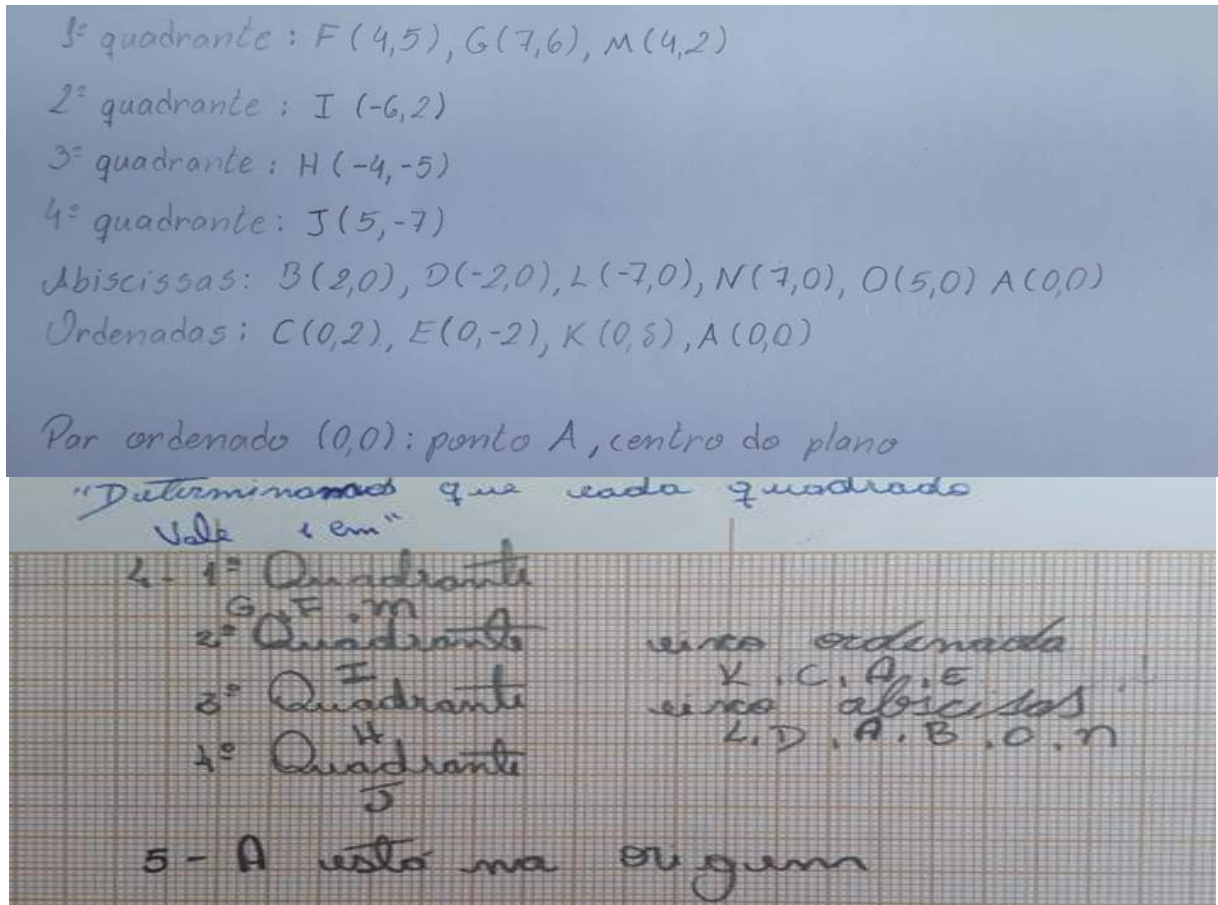 1º quadrante : F (4,5), G(7,6), M(4,2)
2º quadrante : I (-6,2)
3º quadrante : H (-4,-5)
4º quadrante : J(5,-7)
Abiscissas: B(2,0), D(-2,0), L(-7,0), N(7,0), O(5,0) A(0,0)
Ordenadas: C(0,2), E(0,-2), K(0,8), A(0,0)
Par ordenado (0,0): ponto A, centro do plano
"Determinamos que cada quadrado
Vale 1 cm"
4 - 1º Quadrante
G . F . M
2º Quadrante eixo ordenada
I K . C . A . E
3º Quadrante eixo abicisas
H L . D . A . B . O . n
4º Quadrante
J
5 - A está na origem